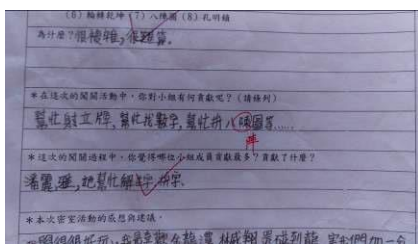 (6) 輪轉乾坤 (7) 八陣圖 (8) 孔明鎖
為什麼?很複雜,很難算。
*在這次的闖關活動中,你對小組有何貢獻呢?(請條列)
幫忙射立牌,幫忙找數字,幫忙拼八陳圖等.....
陣
*這次的闖關過程中,你覺得哪位小組成員貢獻最多?貢獻了什麼?
潘 雅,她幫忙解 字,拼字。
*本次密室活動的感想與建議。